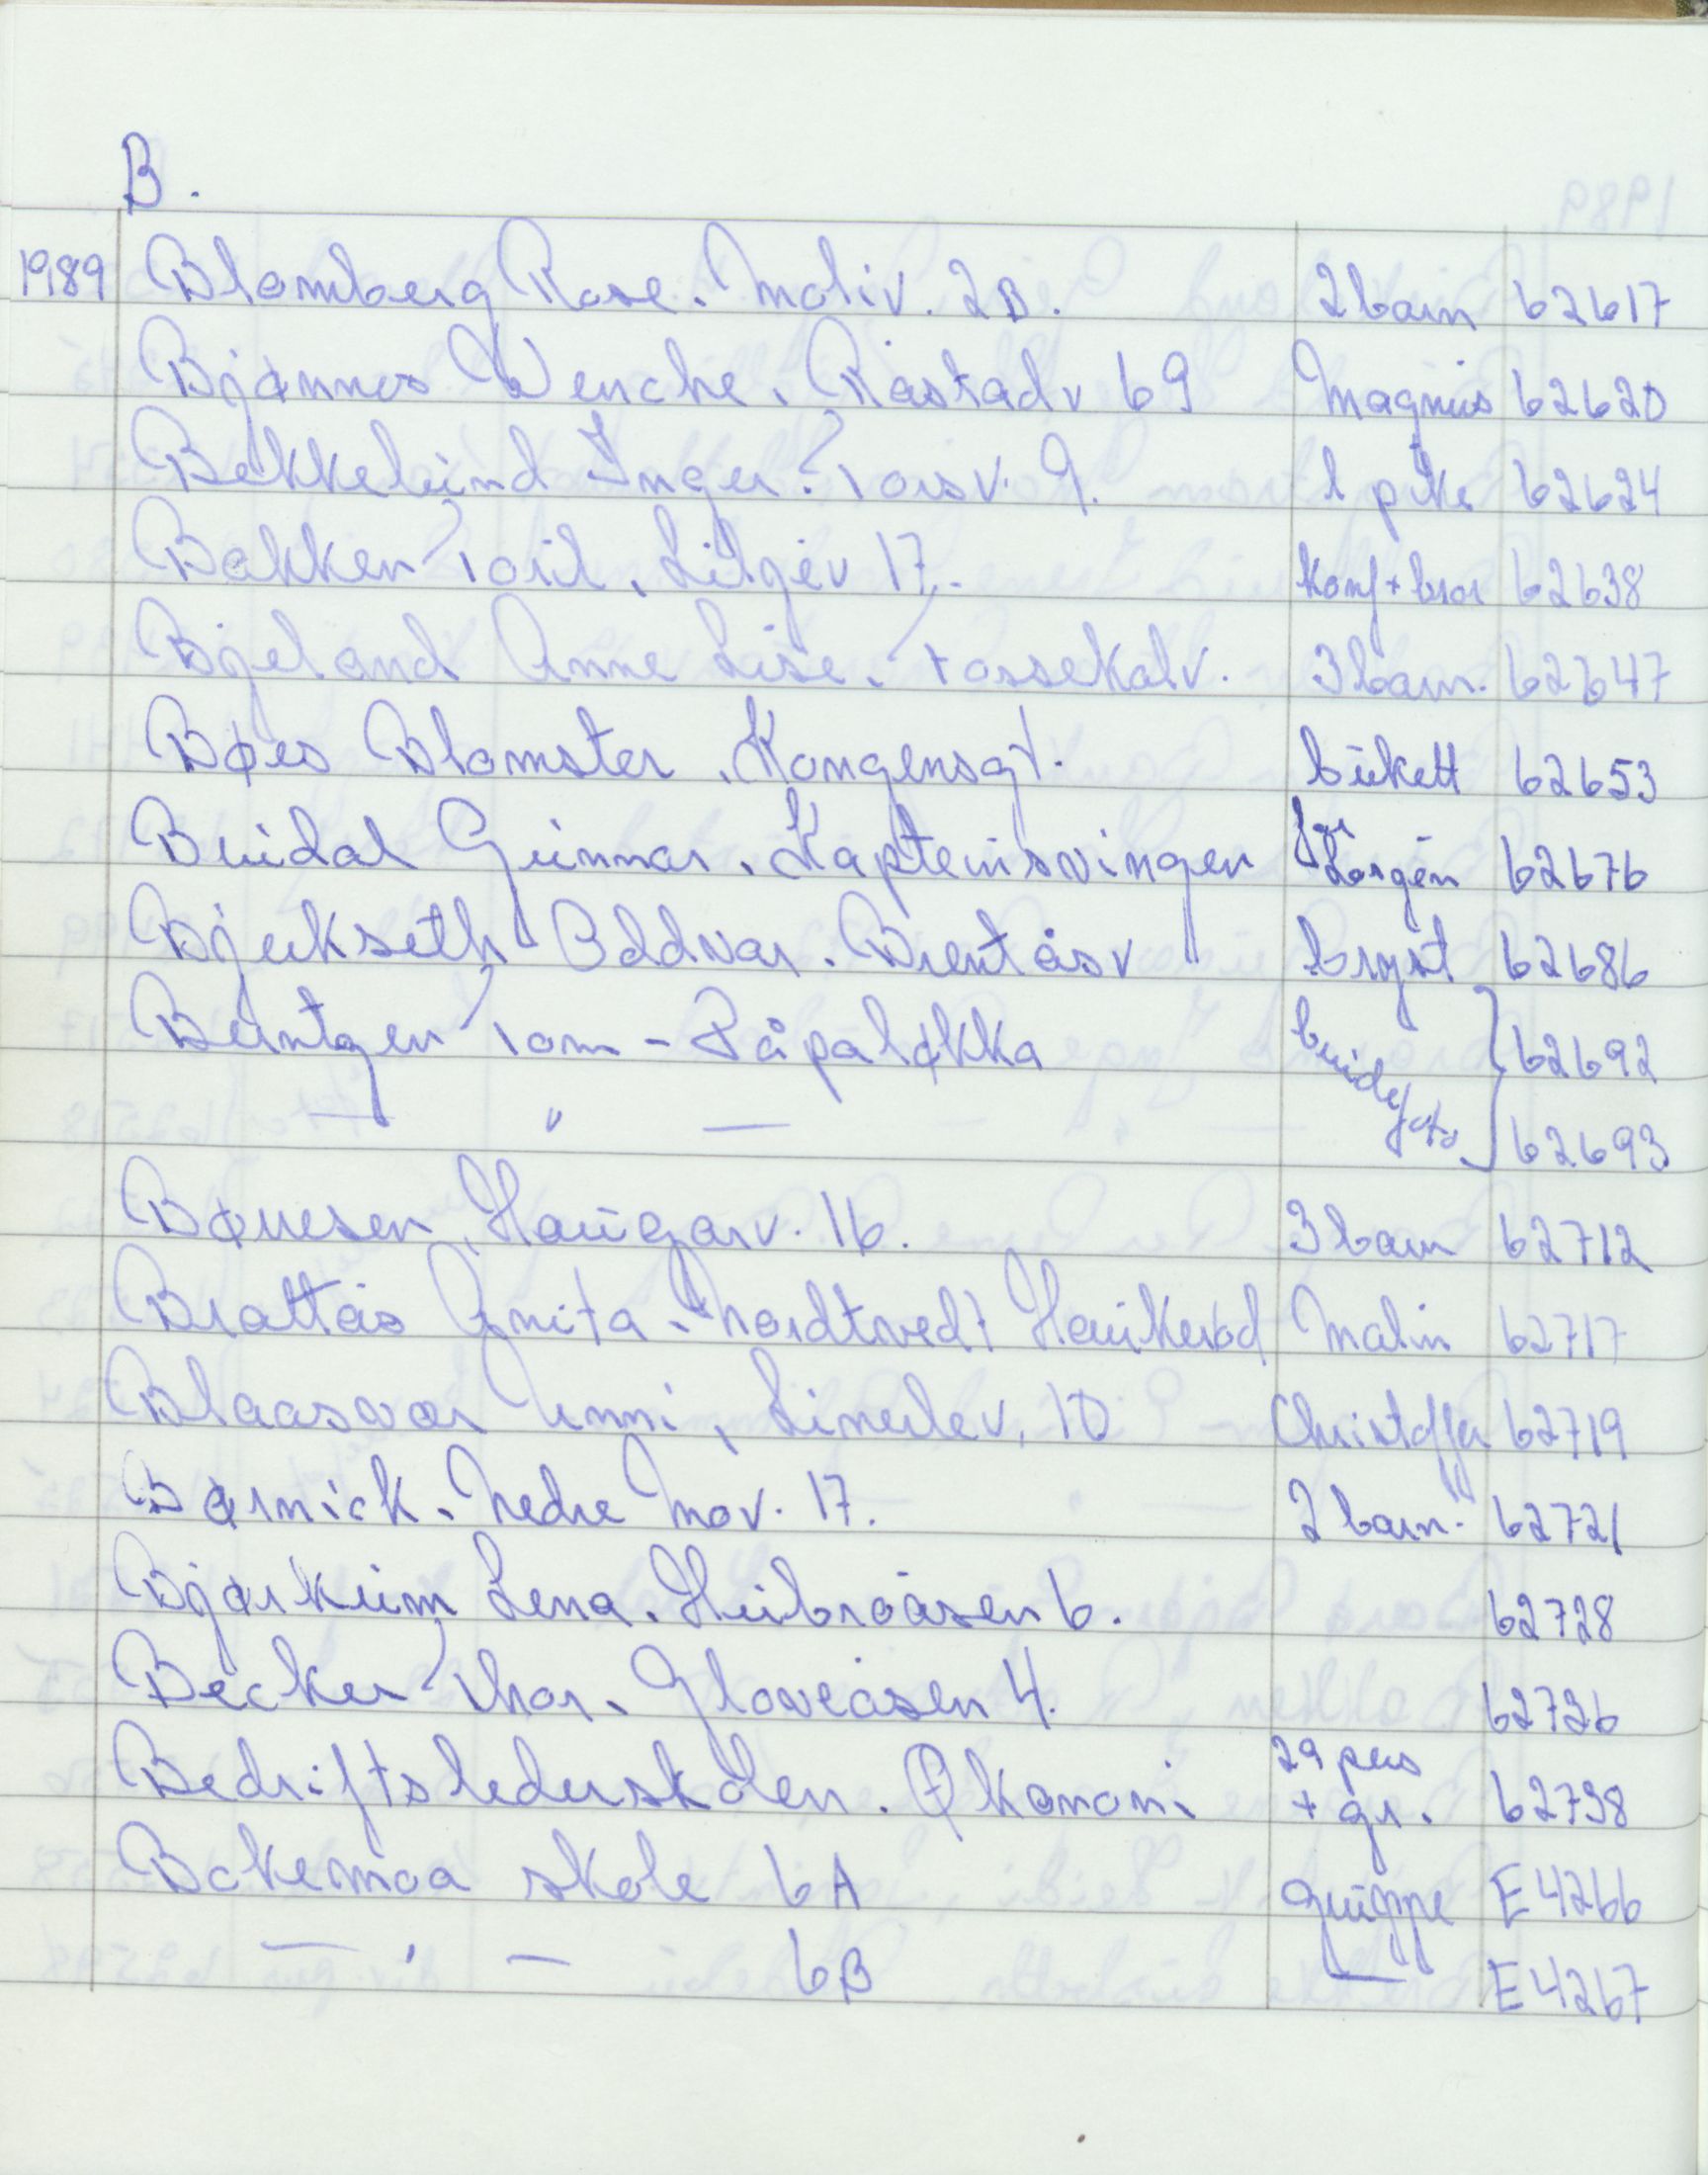 B.
1989 Blomberg Rose. Moliv. 2B. 2 barn 62617
Bjønnes Wenche. Råstadv 69 Magnus 62620
Bekkelund Inger. Torsv. 9. 1 pike 62624
Bakken Toril. Lilgév 17. Konf + bror 62638
Bjelland Anne Lise. Fossekalv. 3 barn. 62647
Bøes Blomster. Kongensgt. bukett 62653
Buidal Gunnar. Kapteinsvingen Jørgen 62676
Bjerkseth Oddvar. Brentåsv bryst 62686
Berntzen Tom - Påpaløkka brudefoto 62692
— " — 62693
Børresen, Haugarv. 16. 3 barn 62712
Brattås Anita. Nordtvedt Haukerød Malin 62717
Blaasvær Unni, Linerlev. 10 Christoffer 62719
Børnick. Nedre Mov. 17. 2 barn. 62721
Bjørkum Lena. Hubroåsen 6. 62728
Becker Thor. Gloveåsen 4. 62726
Bedriftslederskolen. Økonomi 29 pers + gr. 62738
Bokemoa skole 6A gruppe E4266
— " — 6B — E4267